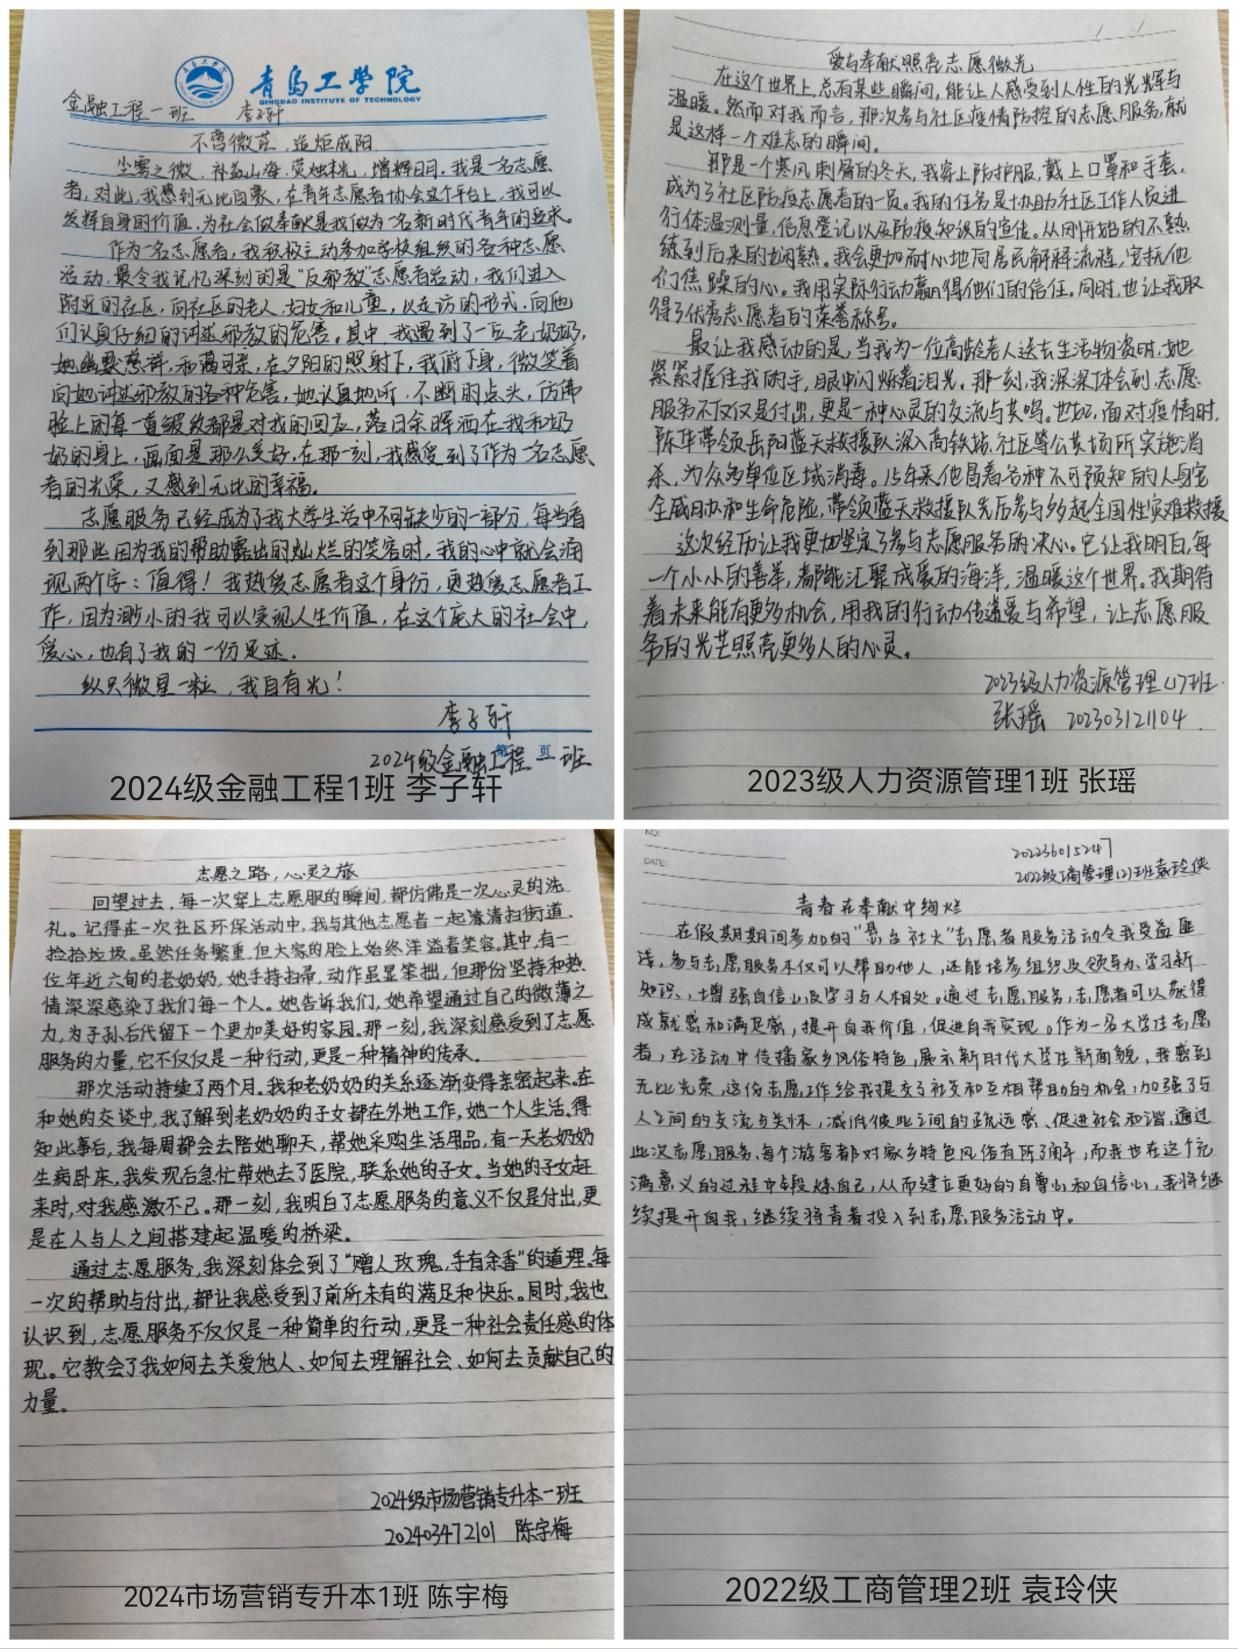 青岛工学院
QINGDAO INSTITUTE OF TECHNOLOGY
金融工程一班 李子轩
不啻微茫，造炬成阳
尘雾之微，补益山海，荧烛末光，增辉日月，我是一名志愿
者，对此，我感到无比自豪，在青年志愿者协会这个平台上，我可以
发挥自身的价值，为社会做奉献是我做为一名新时代青年的要求。
作为一名志愿者，我积极主动参加学校组织的各种志愿
活动，最令我记忆深刻的是“反邪教”志愿者活动，我们进入
附近的社区，向社区的老人，妇女和儿童，以走访的形式，向他
们认真仔细的讲述邪教的危害。其中，我遇到了一位老奶奶，
她幽默慈祥，和蔼可亲，在夕阳的照射下，我俯下身，微笑着
向她讲述邪教的各种危害，她认真地听，不断的点头，仿佛
脸上的每一直皱纹都是对我的回应，落日余晖洒在我和奶
奶的身上，画面是那么美好，在那一刻，我感受到了作为一名志愿
者的光荣，又感到无比的幸福。
志愿服务已经成为了我大学生活中不可缺少的一部分，每当看
到那些因为我的帮助露出的灿烂的笑容时，我的心中就会涌
现两个字：值得！我热爱志愿者这个身份，更热爱志愿者工
作，因为渺小的我可以实现人生价值，在这个庞大的社会中，
爱心，也有了我的一份足迹．
纵只微星一粒，我自有光！
李子轩
2024级金融工程一班
第 页
2024级金融工程1班 李子轩
爱与奉献照亮志愿微光
在这个世界上，总有某些瞬间，能让人感受到人性的光辉与
温暖。然而对我而言，那次参与社区疫情防控的志愿服务，就
是这样一个难忘的瞬间。
那是一个寒风刺骨的冬天，我穿上防护服，戴上口罩和手套，
成为了社区防疫志愿者的一员。我的任务是协助社区工作人员进
行体温测量，信息登记以及防疫知识的宣传。从刚开始的不熟
练到后来的娴熟。我会更加耐心地向居民解释流程，安抚他
们焦躁的心。我用实际行动赢得他们的信任。同时，也让我取
得了优秀志愿者的荣誉称号。
最让我感动的是，当我为一位高龄老人送去生活物资时，她
紧紧握住我的手，眼中闪烁着泪光。那一刻，我深深体会到，志愿
服务不仅仅是付出，更是一种心灵的交流与共鸣。也如，面对疫情时，
陈华带领岳阳蓝天救援队深入高铁站、社区等公共场所实施消
杀，为众多单位区域消毒。15年来，他冒着各种不可预知的人身安
全威胁和生命危险，带领蓝天救援队先后参与多起全国性灾难救援
这次经历让我更加坚定了参与志愿服务的决心。它让我明白，每
一个小小的善举，都能汇聚成爱的海洋，温暖这个世界。我期待
着未来能有更多机会，用我的行动传递爱与希望，让志愿服
务的光芒照亮更多人的心灵。
2023级人力资源管理(1)班
张瑶 202303121104
2023级人力资源管理1班 张瑶
志愿之路，心灵之旅
回望过去，每一次穿上志愿服的瞬间，都仿佛是一次心灵的洗
礼。记得在一次社区环保活动中，我与其他志愿者一起清清扫街道、
捡拾垃圾。虽然任务繁重，但大家的脸上始终洋溢着笑容。其中，有一
位年近六旬的老奶奶，她手持扫帚，动作虽显笨拙，但那份坚持和热
情深深感染了我们每一个人。她告诉我们，她希望通过自己的微薄之
力，为子孙后代留下一个更加美好的家园。那一刻，我深刻感受到了志愿
服务的力量，它不仅仅是一种行动，更是一种精神的传承。
那次活动持续了两个月。我和老奶奶的关系逐渐变得亲密起来。在
和她的交谈中，我了解到老奶奶的子女都在外地工作，她一个人生活。得
知此事后，我每周都会去陪她聊天，帮她采购生活用品，有一天老奶奶
生病卧床，我发现后急忙带她去了医院，联系她的子女。当她的子女赶
来时，对我感激不已。那一刻，我明白了志愿服务的意义不仅是付出，更
是在人与人之间搭建起温暖的桥梁。
通过志愿服务，我深刻体会到了“赠人玫瑰，手有余香”的道理。每
一次的帮助与付出，都让我感受到了前所未有的满足和快乐。同时，我也
认识到，志愿服务不仅仅是一种简单的行动，更是一种社会责任感的体
现。它教会了我如何去关爱他人、如何去理解社会、如何去贡献自己的
力量。
2024级市场营销专升本一班
202403472101 陈宇梅
2024市场营销专升本1班 陈宇梅
NO:
DATE:
202236015247
2022级工商管理(2)班袁玲侠
青春在奉献中绚烂
在假期期间参加的“昙台社火”志愿者服务活动令我受益匪
浅，参与志愿服务不仅可以帮助他人，还能培养组织及领导力、学习新
知识、增强自信心及学习与人相处。通过志愿服务，志愿者可以获得
成就感和满足感，提升自我价值，促进自我实现。作为一名大学生志愿
者，在活动中传播家乡风俗特色，展示新时代大学生新面貌，我感到
无比光荣，这份志愿工作给我提交了社交和互相帮助的机会，加强了与
人之间的交流与关怀，减低彼此之间的疏远感、促进社会和谐，通过
此次志愿服务，每个游客都对家乡特色风俗有所了解，而我也在这个充
满意义的过程中锻炼自己，从而建立更好的自尊心和自信心，我将继
续提升自我，继续将青春投入到志愿服务活动中。
2022级工商管理2班 袁玲侠